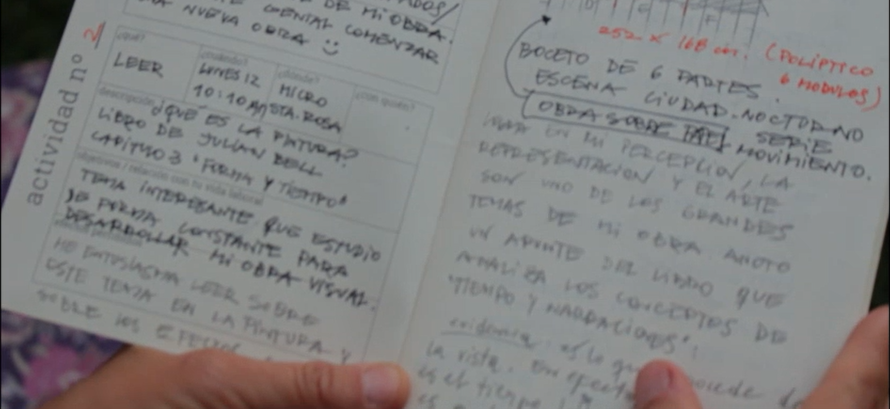 DE MI OBRA.
GENIAL COMENZAR
UNA NUEVA OBRA :)
actividad nº 2
¿qué?
LEER
¿cuándo?
LUNES 12
10:10 AM
¿dónde?
MICRO
STA. ROSA
¿con quién?
descripción
¿QUÉ ES LA PINTURA?
LIBRO DE JULIAN BELL
CAPITULO 3 "FORMA Y TIEMPO"
objetivos / relación con tu vida laboral
TEMA INTERESANTE QUE ESTUDIO
DE FORMA CONSTANTE PARA
DESARROLLAR MI OBRA VISUAL.
ME ENTUSIASMA LEER SOBRE
ESTE TEMA EN LA PINTURA Y
SOBRE LOS EFECTOS
252 x 168 cm. (POLÍPTICO
6 MODULOS)
BOCETO DE 6 PARTES.
ESCENA CIUDAD. NOCTURNO
OBRA SOBRE PAPEL SERIE
MOVIMIENTO.
EN MI PERCEPCIÓN, LA
REPRESENTACION Y EL ARTE
SON UNO DE LOS GRANDES
TEMAS DE MI OBRA ANOTO
UN APUNTE DEL LIBRO QUE
ANALIZA LOS CONCEPTOS DE
"TIEMPO Y NARRACIONES":
evidencia: es lo que
la vista. En efecto
es el tiempo